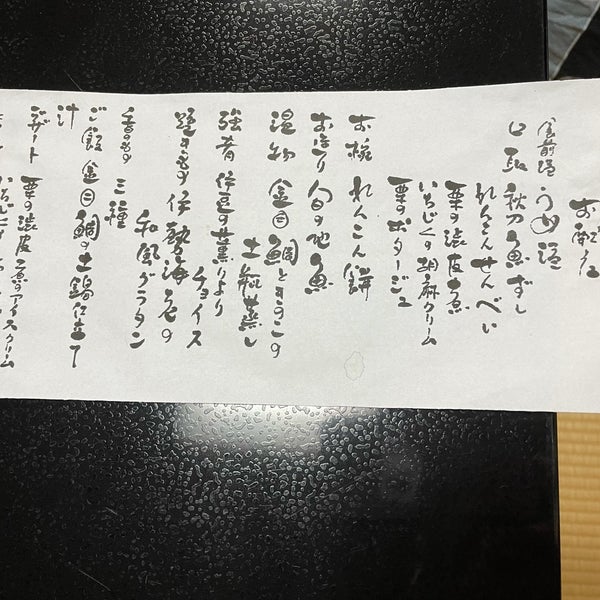 お献立
食前酒 うめ酒
口取 秋刀魚ずし
れんこんせんべい
栗の渋皮煮
いちじくの胡麻クリーム
栗のポタージュ
お椀 れんこん餅
お造り 旬の地魚
温物 金目鯛ときのこの
土瓶蒸し
強肴 伊豆の薫りより
チョイス
焼きもの 伊勢海老の
和風グラタン
香のもの 三種
ご飯 金目鯛の土鍋仕立て
汁
デザート 栗の渋皮煮のアイスクリーム